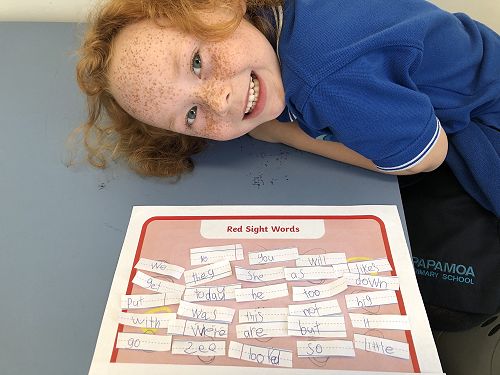 Red Sight Words
to you will
we they she as likes
get today he too down
put was this not big
with were are but it
go zee looked so little
PAPAMOA
PRIMARY SCHOOL